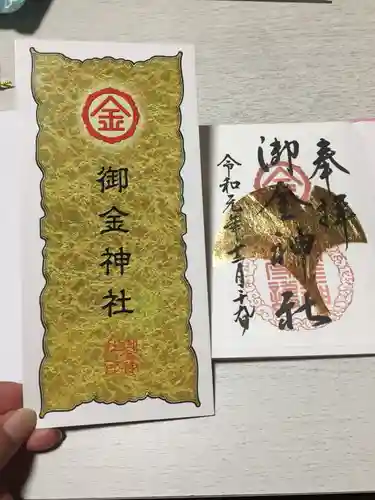 金
御金神社
奉拝
御金神社
令和元年十二月二十九日